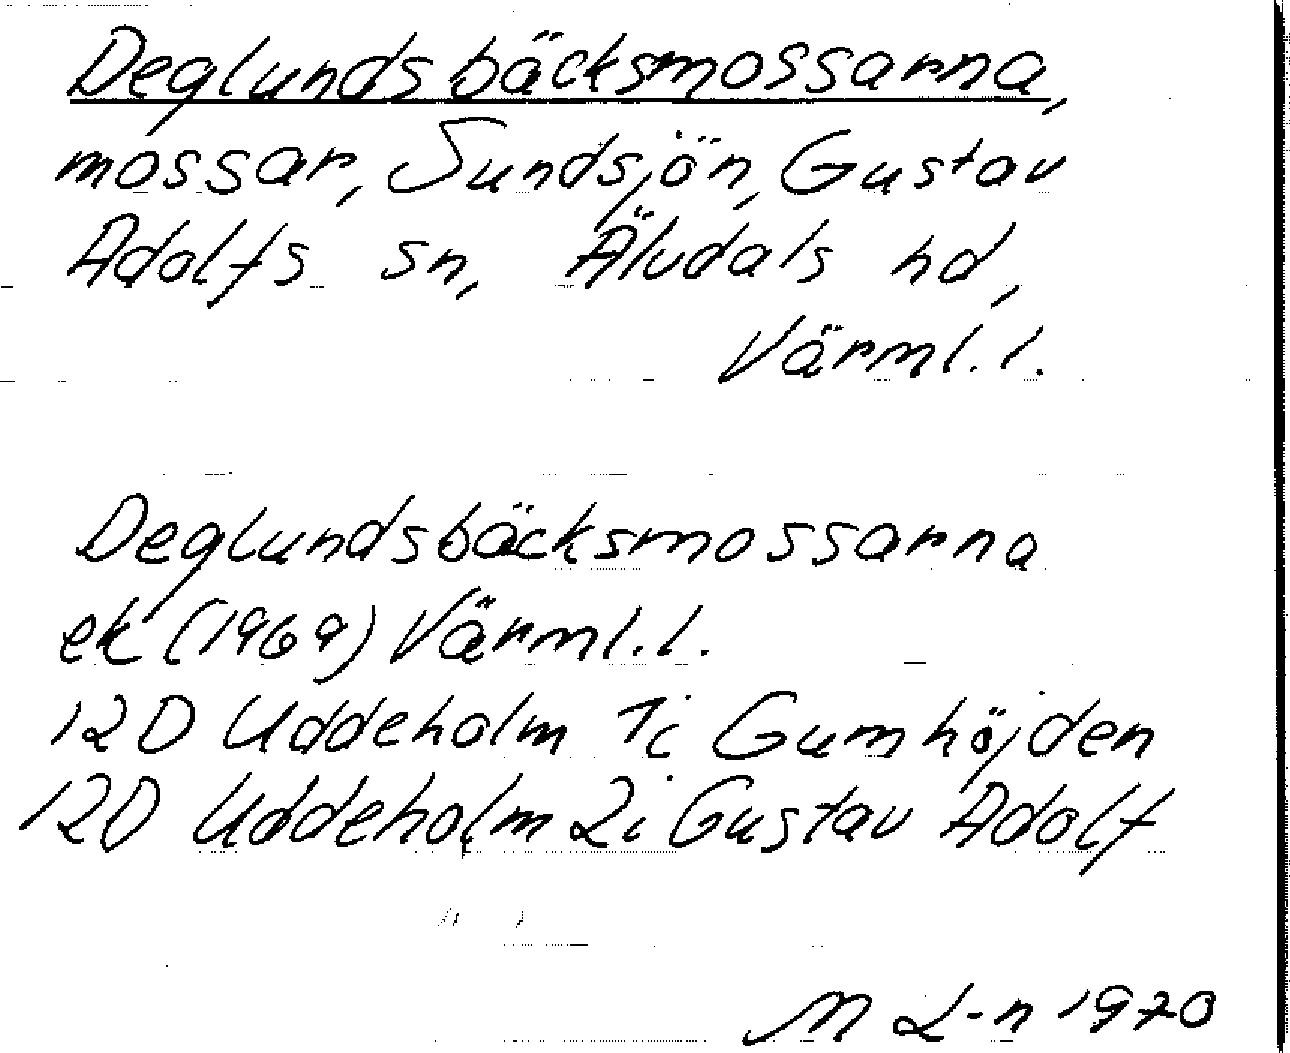 Deglundsbäcksmossarna,
mossar, Sundsjön, Gustav
Adolfs sn, Älvdals hd,
Värml. l.
Deglundsbäcksmossarna
ek (1969) Värml. l.
12D Uddeholm 1i Gumhöjden
12D Uddeholm 2i Gustav Adolf
M L-n 1970